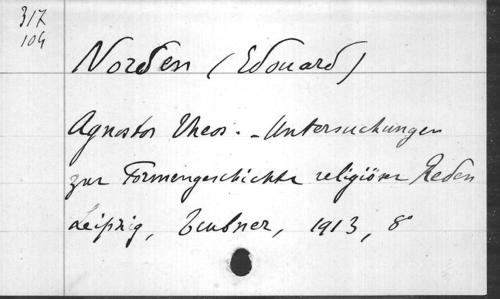 317
104
Norden (Edouard)
Agnostos Theos. - Untersuchungen
zur Formengeschichte religiöser Reden
Leipzig, Teubner, 1913, 8°